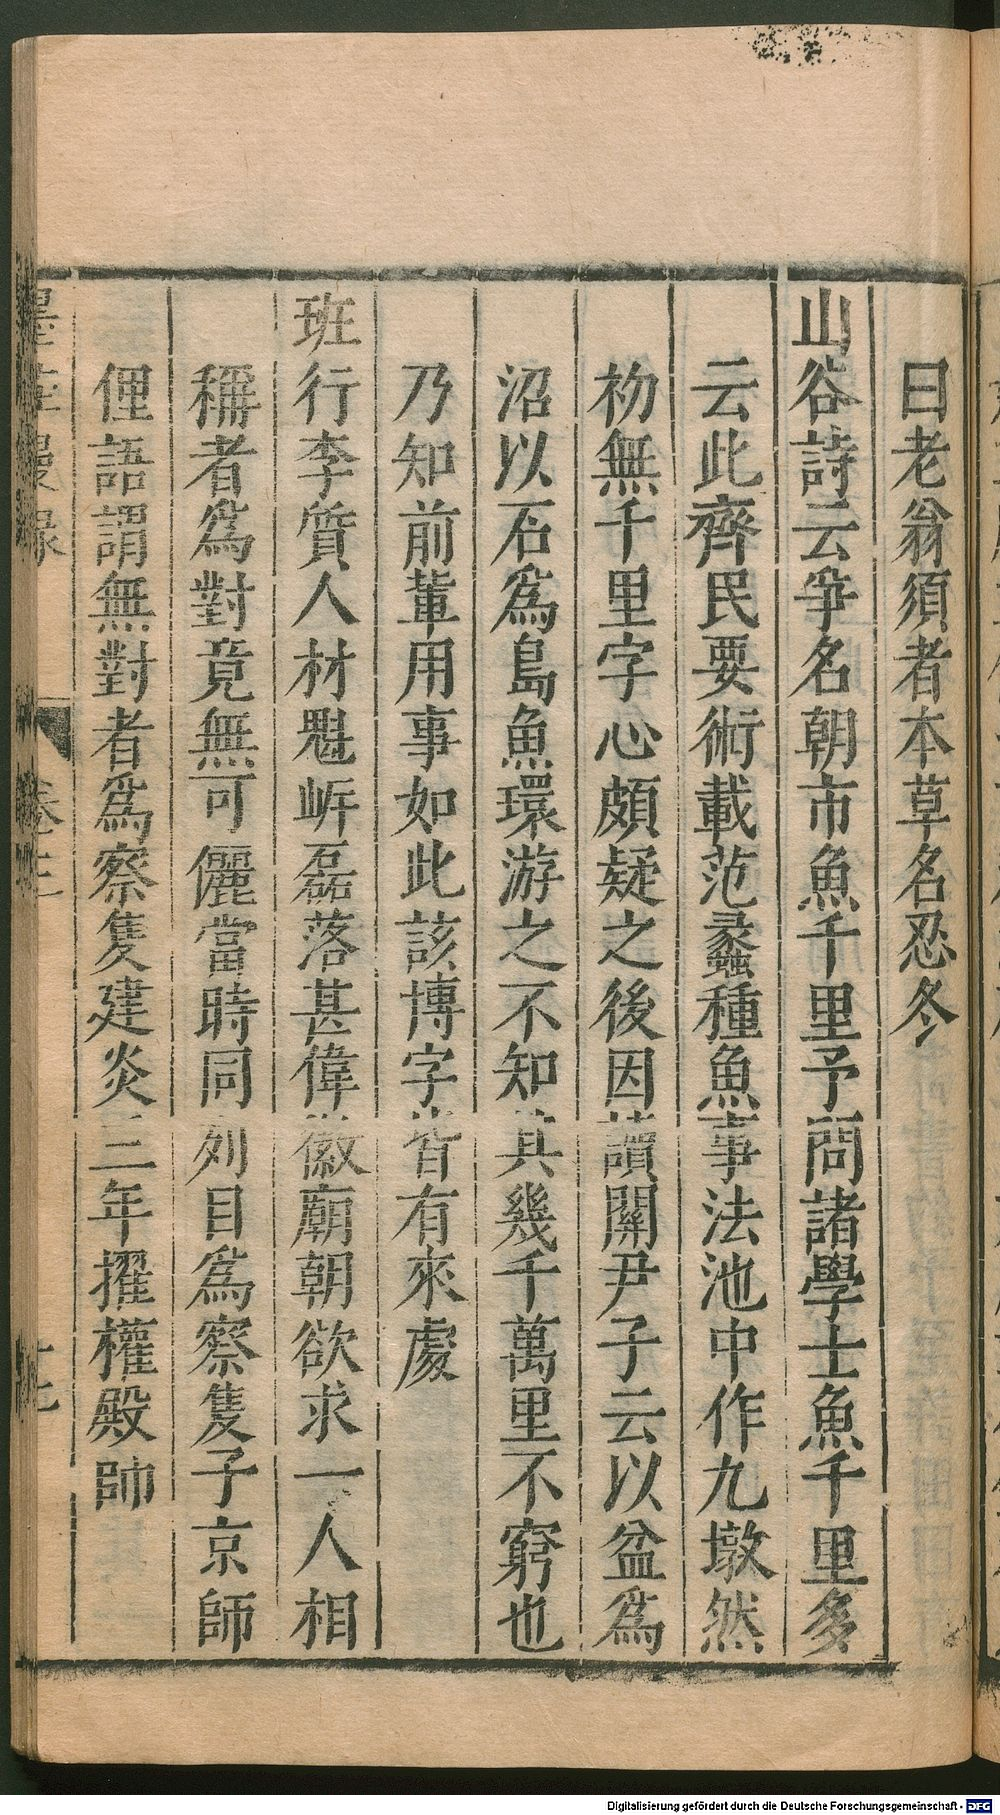 曰老翁須者本草名忍冬
山谷詩云爭名朝市魚千里予問諸學士魚千里多
云此齊民要術載范蠡種魚事法池中作九墩然
初無千里字心頗疑之後因讀關尹子云以盆爲
沼以石爲島魚環游之不知其幾千萬里不窮也
乃知前輩用事如此該博字皆有來處
班行李質人材魁岸磊落甚偉徽廟朝欲求一人相
稱者爲對竟無可儷當時同列目爲察隻子京師
俚語謂無對者爲察隻建炎三年擢權殿帥
墨莊漫錄
卷之三
十七
Digitalisierung gefördert durch die Deutsche Forschungsgemeinschaft - DFG